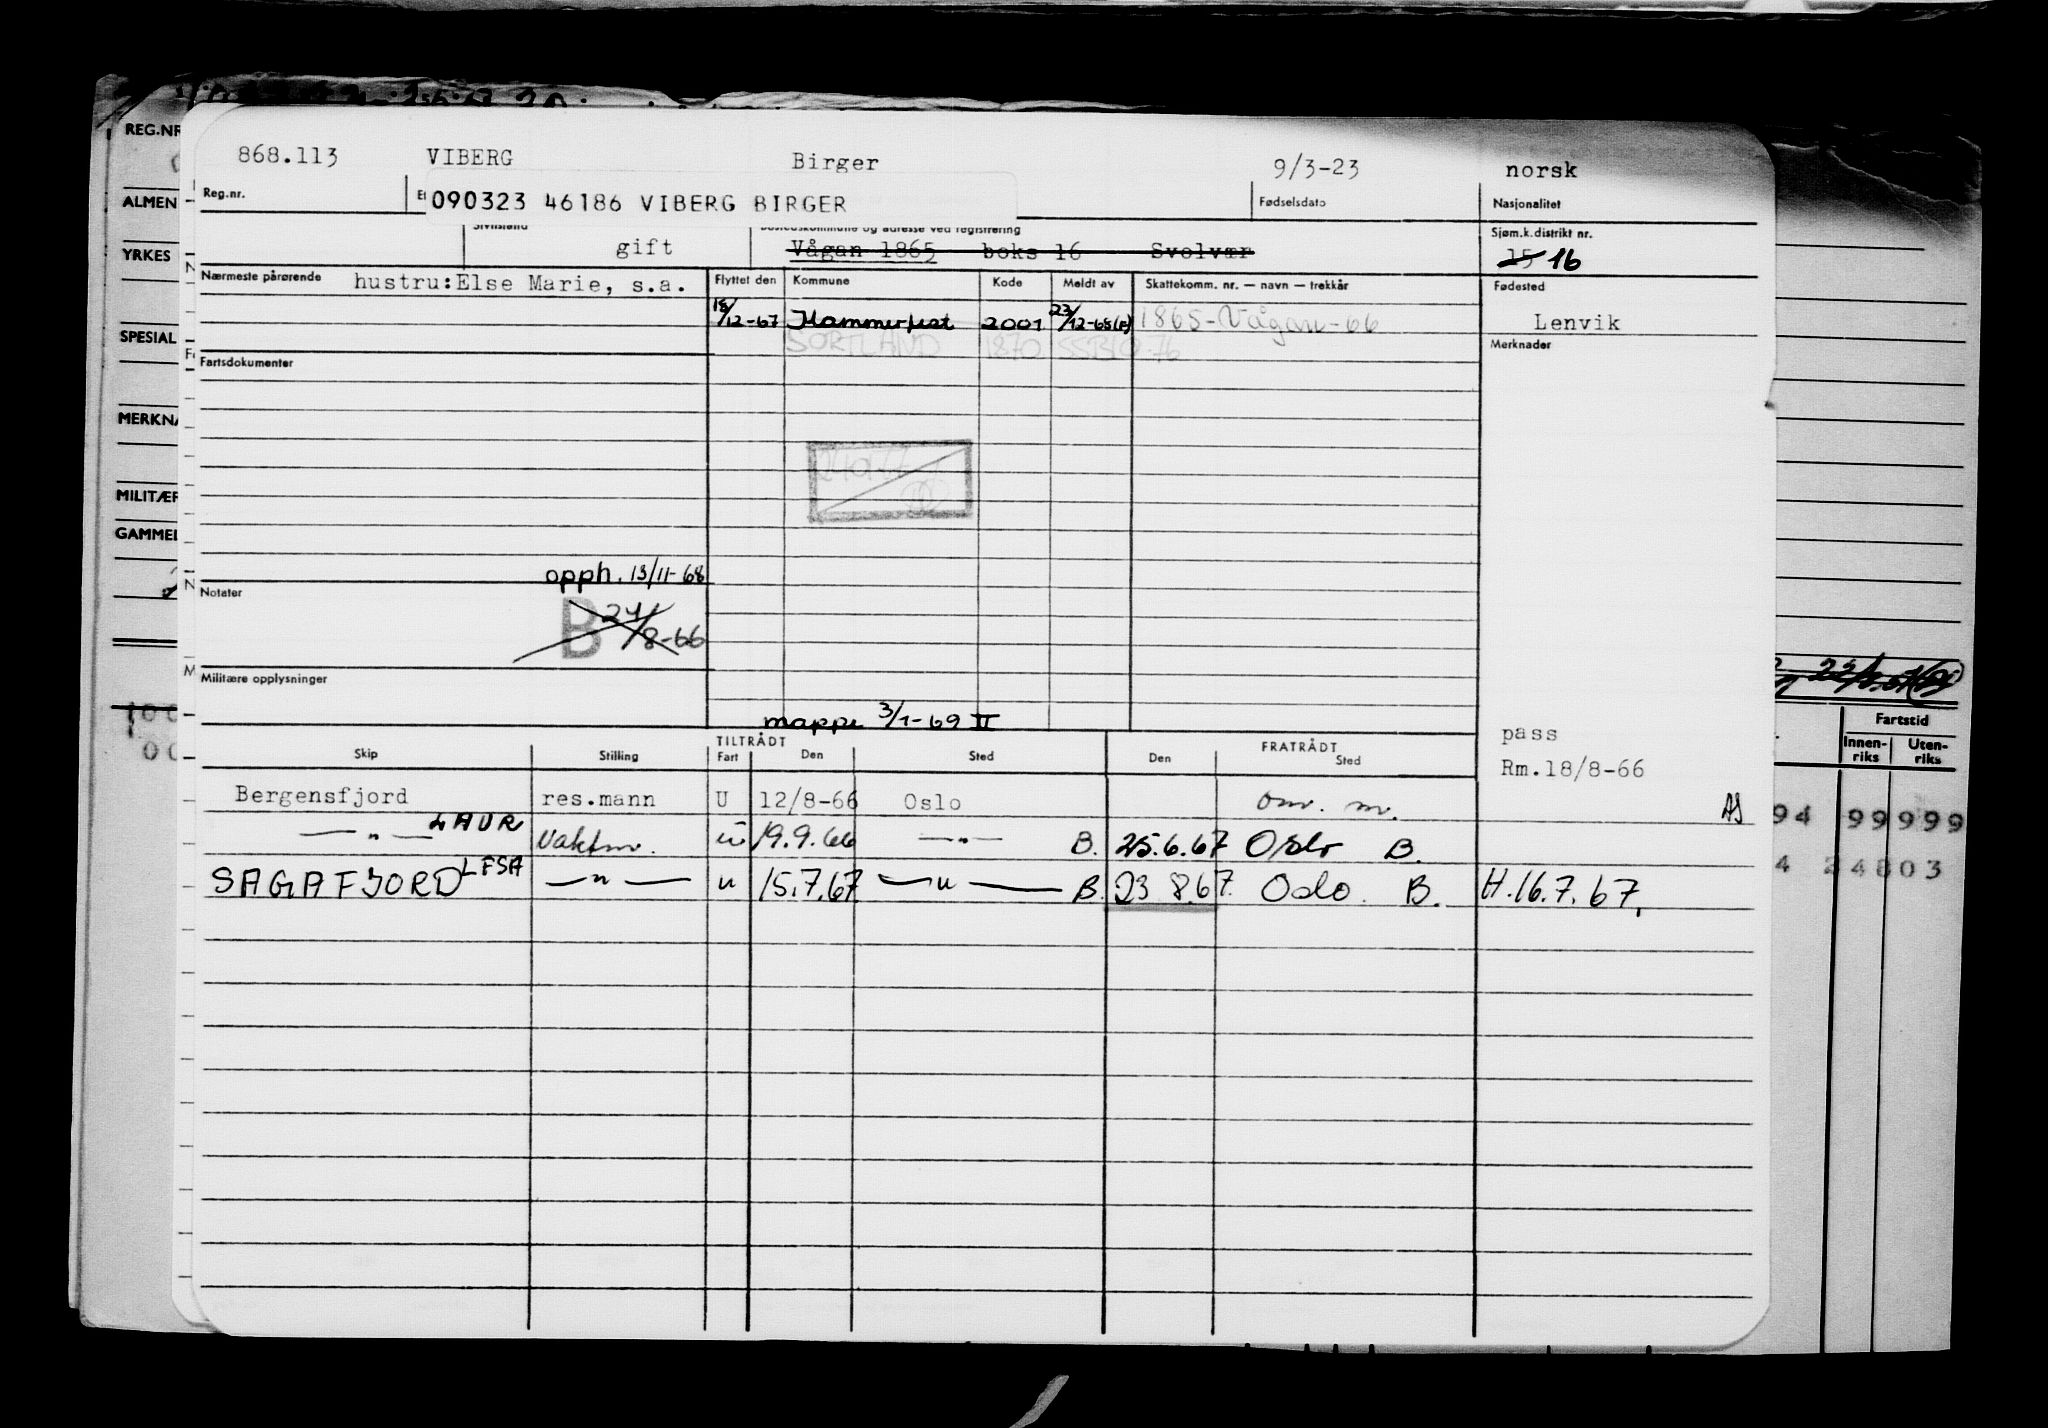 REG.NR
ALMEN
YRKES
SPESIAL
MERKNA
MILITÆR
GAMMEL
868.113 VIBERG Birger 9/3-23 norsk
Reg.nr. Fødselsdato Nasjonalitet
090323 46186 VIBERG BIRGER
Sivilstand Bostedskommune og adresse ved registrering Sjøm.k.distrikt nr.
gift Vågan 1865 boks 16 Svolvær 15 16
Nærmeste pårørende hustru:Else Marie, s.a. Flyttet den Kommune Kode Meldt av Skattekomm. nr. — navn — trekkår Fødested
18/12-67 Hammerfest 2001 1865-Vågan-66 Lenvik
SORTLAND 1870 SSB10-76 Merknader
Fartsdokumenter
opph. 13/11-68
Notater
B 24/8-66
Militære opplysninger
mappe 3/1-69 II
TILTRÅDT FRATRÅDT pass
Skip Stilling Fart Den Sted Den Sted
Rm.18/8-66
Bergensfjord res.mann U 12/8-66 Oslo omr. m. AS
—"— LAUR Vaktm. u 19.9.66 —"— B. 25.6.67 Oslo B.
SAGAFJORD LFSA —"— u 15.7.67 —"— B. 23 8.67. Oslo. B. H.16.7.67.
Fartstid
Innen-riks Uten-riks
94 99 999
4 24803